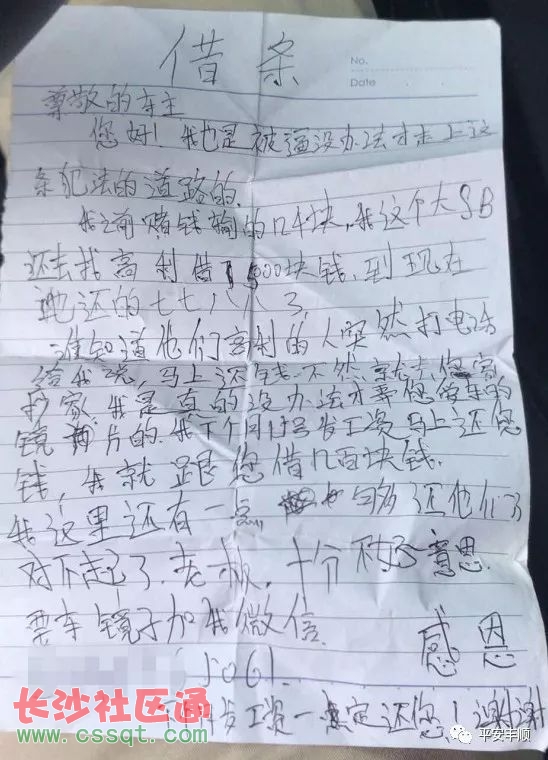 借条
No.
Date
尊敬的车主
您好！我也是被逼没办法才走上这
条犯法的道路的.
我之前赌钱输的几千块,我这个大SB
还去找高利借1500块钱,到现在
也还的七七八八了,
谁知道他们高利的人突然打电话
给我说,马上还钱.不然就去您家
抄家.我是真的没办法才弄您爱车的
镜片的.我下个月15号发工资马上还您
钱,我就跟您借几百块钱.
我这里还有一点 够还他们了
对不起了.老板.十分不好意思.
要车镜子加我微信.
感恩
发工资一定还您！谢谢
长沙社区通
www.cssqt.com
平安丰顺